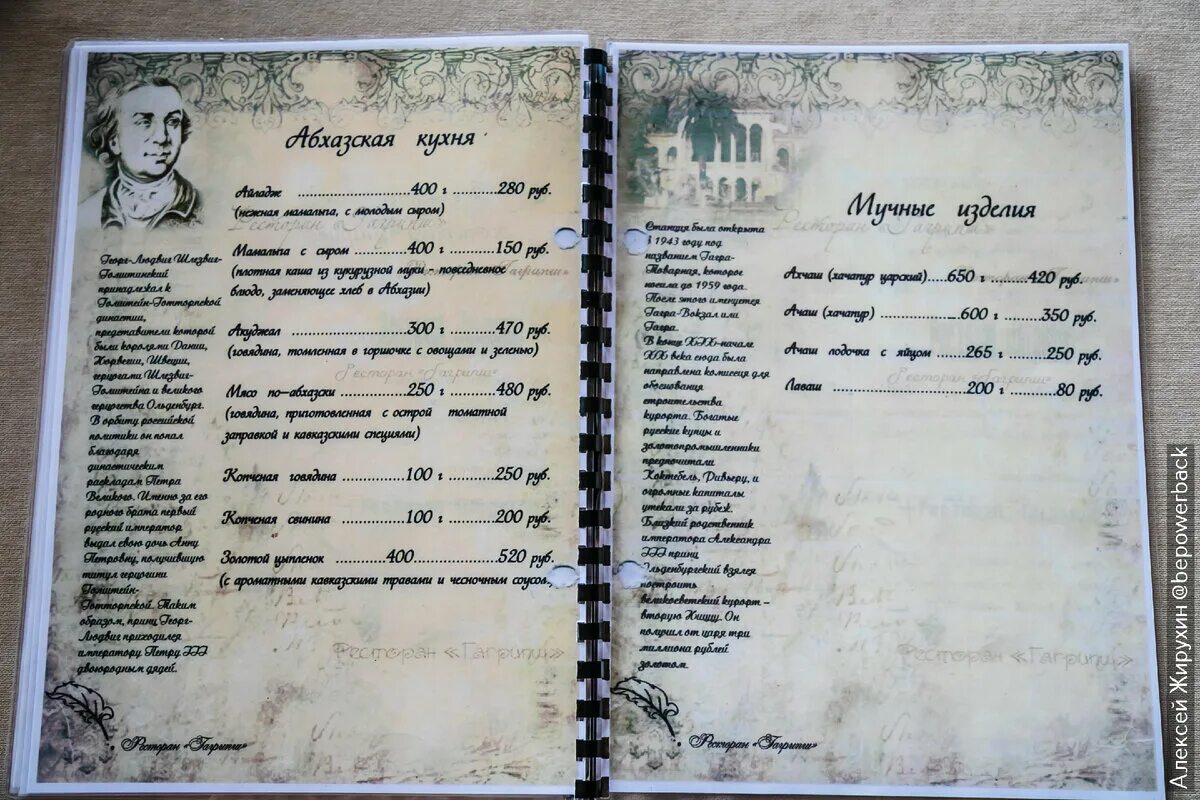 Абхазская кухня
Айладж ........................400 г ..........280 руб.
(нежная мамалыга, с молодым сыром)
Мамалыга с сыром .............400 г ..........150 руб.
(плотная каша из кукурузной муки - повседневное
блюдо, заменяющее хлеб в Абхазии)
Акуджал .........................300 г ..........470 руб.
(говядина, томленная в горшочке с овощами и зеленью)
Мясо по-абхазски ..............250 г ..........480 руб.
(говядина, приготовленная с острой томатной
заправкой и кавказскими специями)
Копченая говядина ..............100 г ..........250 руб.
Копченая свинина ..............100 г ..........200 руб.
Золотой цыпленок ...........400...................520 руб.
(с ароматными кавказскими травами и чесночным соусом
Георг-Людвиг Шлезвиг-
Голштинский
принадлежал к
Гольштейн-Готторпской
династии,
представители которой
были королями Дании,
Норвегии, Швеции,
герцогами Шлезвиг-
Голштейна и великого
герцогства Ольденбург.
В орбиту российской
политики он попал
благодаря
династическим
раскладам Петра
Великого. Именно за его
родного брата первый
русский император
выдал свою дочь Анну
Петровну, получившую
титул герцогини
Гольштейн-
Готторпской. Таким
образом, принц Георг-
Людвиг приходился
императору Петру III
двоюродным дядей.
Ресторан «Гагрипш»
Ресторан «Гагрипш»
Мучные изделия
Ахчаш (хачапур царский)....650 г .........420 руб.
Ачаш (хачапур) ..................600 г .........350 руб.
Ачаш лодочка с яйцом .......265 г ..........250 руб.
Лаваш ..............................200 г ..........80 руб.
Станция была открыта
в 1943 году под
названием Гагра-
Товарная, которое
носила до 1959 года.
После этого именуется
Гагра-Вокзал или
Гагра.
В конце XIX-начале
XX века сюда была
направлена комиссия для
обоснования
строительства
курорта. Богатые
русские купцы и
золотопромышленники
предпочитали
Коктебель, Ривьеру, и
огромные капиталы
утекали за рубеж.
Близкий родственник
императора Александра
III принц
Ольденбургский взялся
построить
великосветский курорт –
вторую Ниццу. Он
получил от царя три
миллиона рублей
золотом.
Ресторан «Гагрипш»
Ресторан «Гагрипш»
Алексей Жирухин @bepowerback